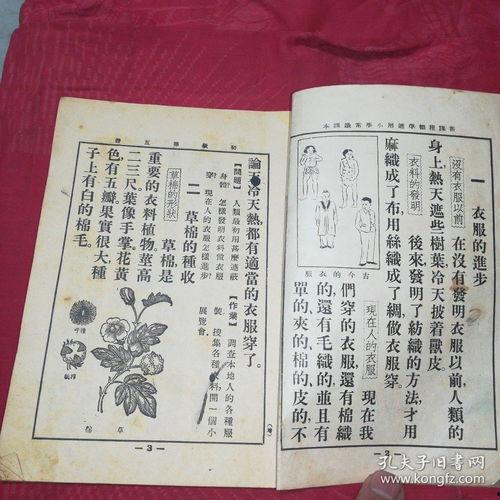 新課程標準適用小學常識課本
一 衣服的進步
沒有衣服以前 在沒有發明衣服以前，人類的
身上，熱天遮些樹葉，冷天披着獸皮。
衣料的發明 後來發明了紡織的方法，才用
麻織成了布，用絲織成了綢，做衣服穿。
現在人的衣服 現在我
們穿的衣服，還有棉織
的，還有毛織的，並且有
單的、夾的、棉的、皮的，不
古今的衣服
— 2 —
初級第五冊
論天冷天熱，都有適當的衣服穿了。
【問題】人類最初用甚麼遮蔽
身體？怎樣發明衣料做衣服
穿？現在人的衣服怎樣進步？
【作業】調查本地人的各種服
裝，搜集各種衣料，開一個小
展覽會。
二 草棉的種收
草棉的形狀 草棉是
重要的衣料植物，莖高
二三尺，葉像手掌，花黃
色，有五瓣，果實很大，種
子上有白的棉毛。
草棉
— 3 —
孔夫子旧书网
www.kongfz.com